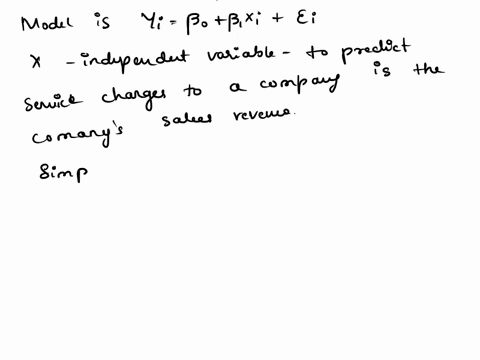 Model is Yi = β0 + β1xi + εi
X - independent variable - to predict
service charges to a company is the
comany's sales revenue.
Simp